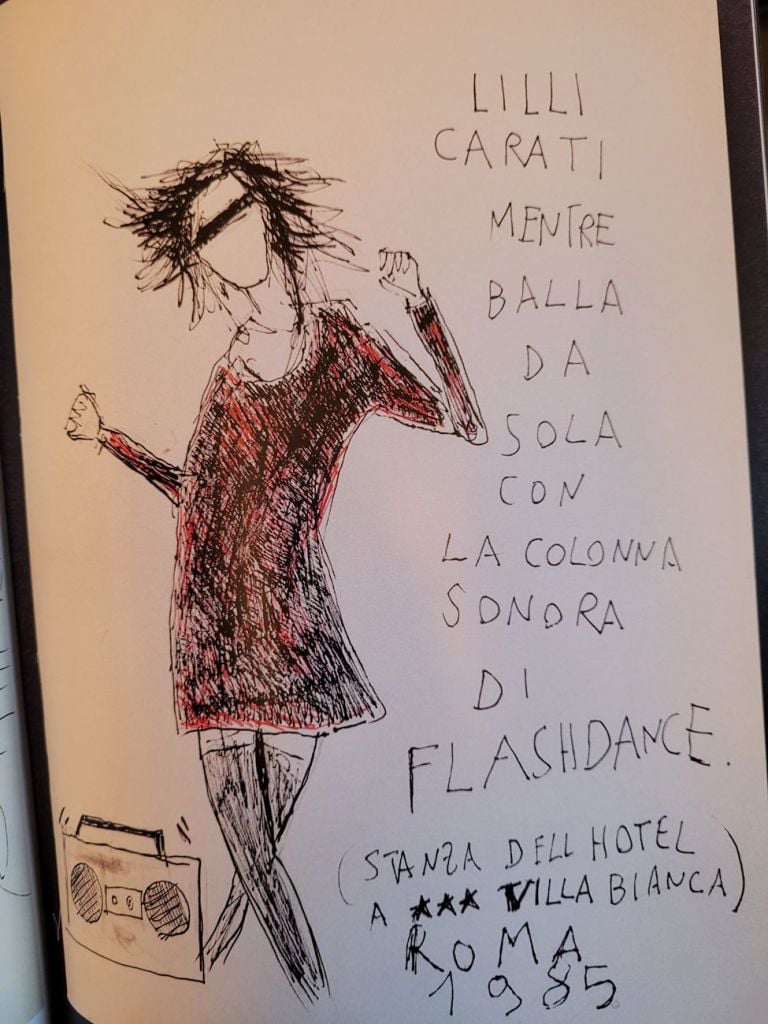 LILLI
CARATI
MENTRE
BALLA
DA
SOLA
CON
LA COLONNA
SONORA
DI
FLASHDANCE.
(STANZA DELL HOTEL
A ★★★ VILLA BIANCA)
ROMA
1985